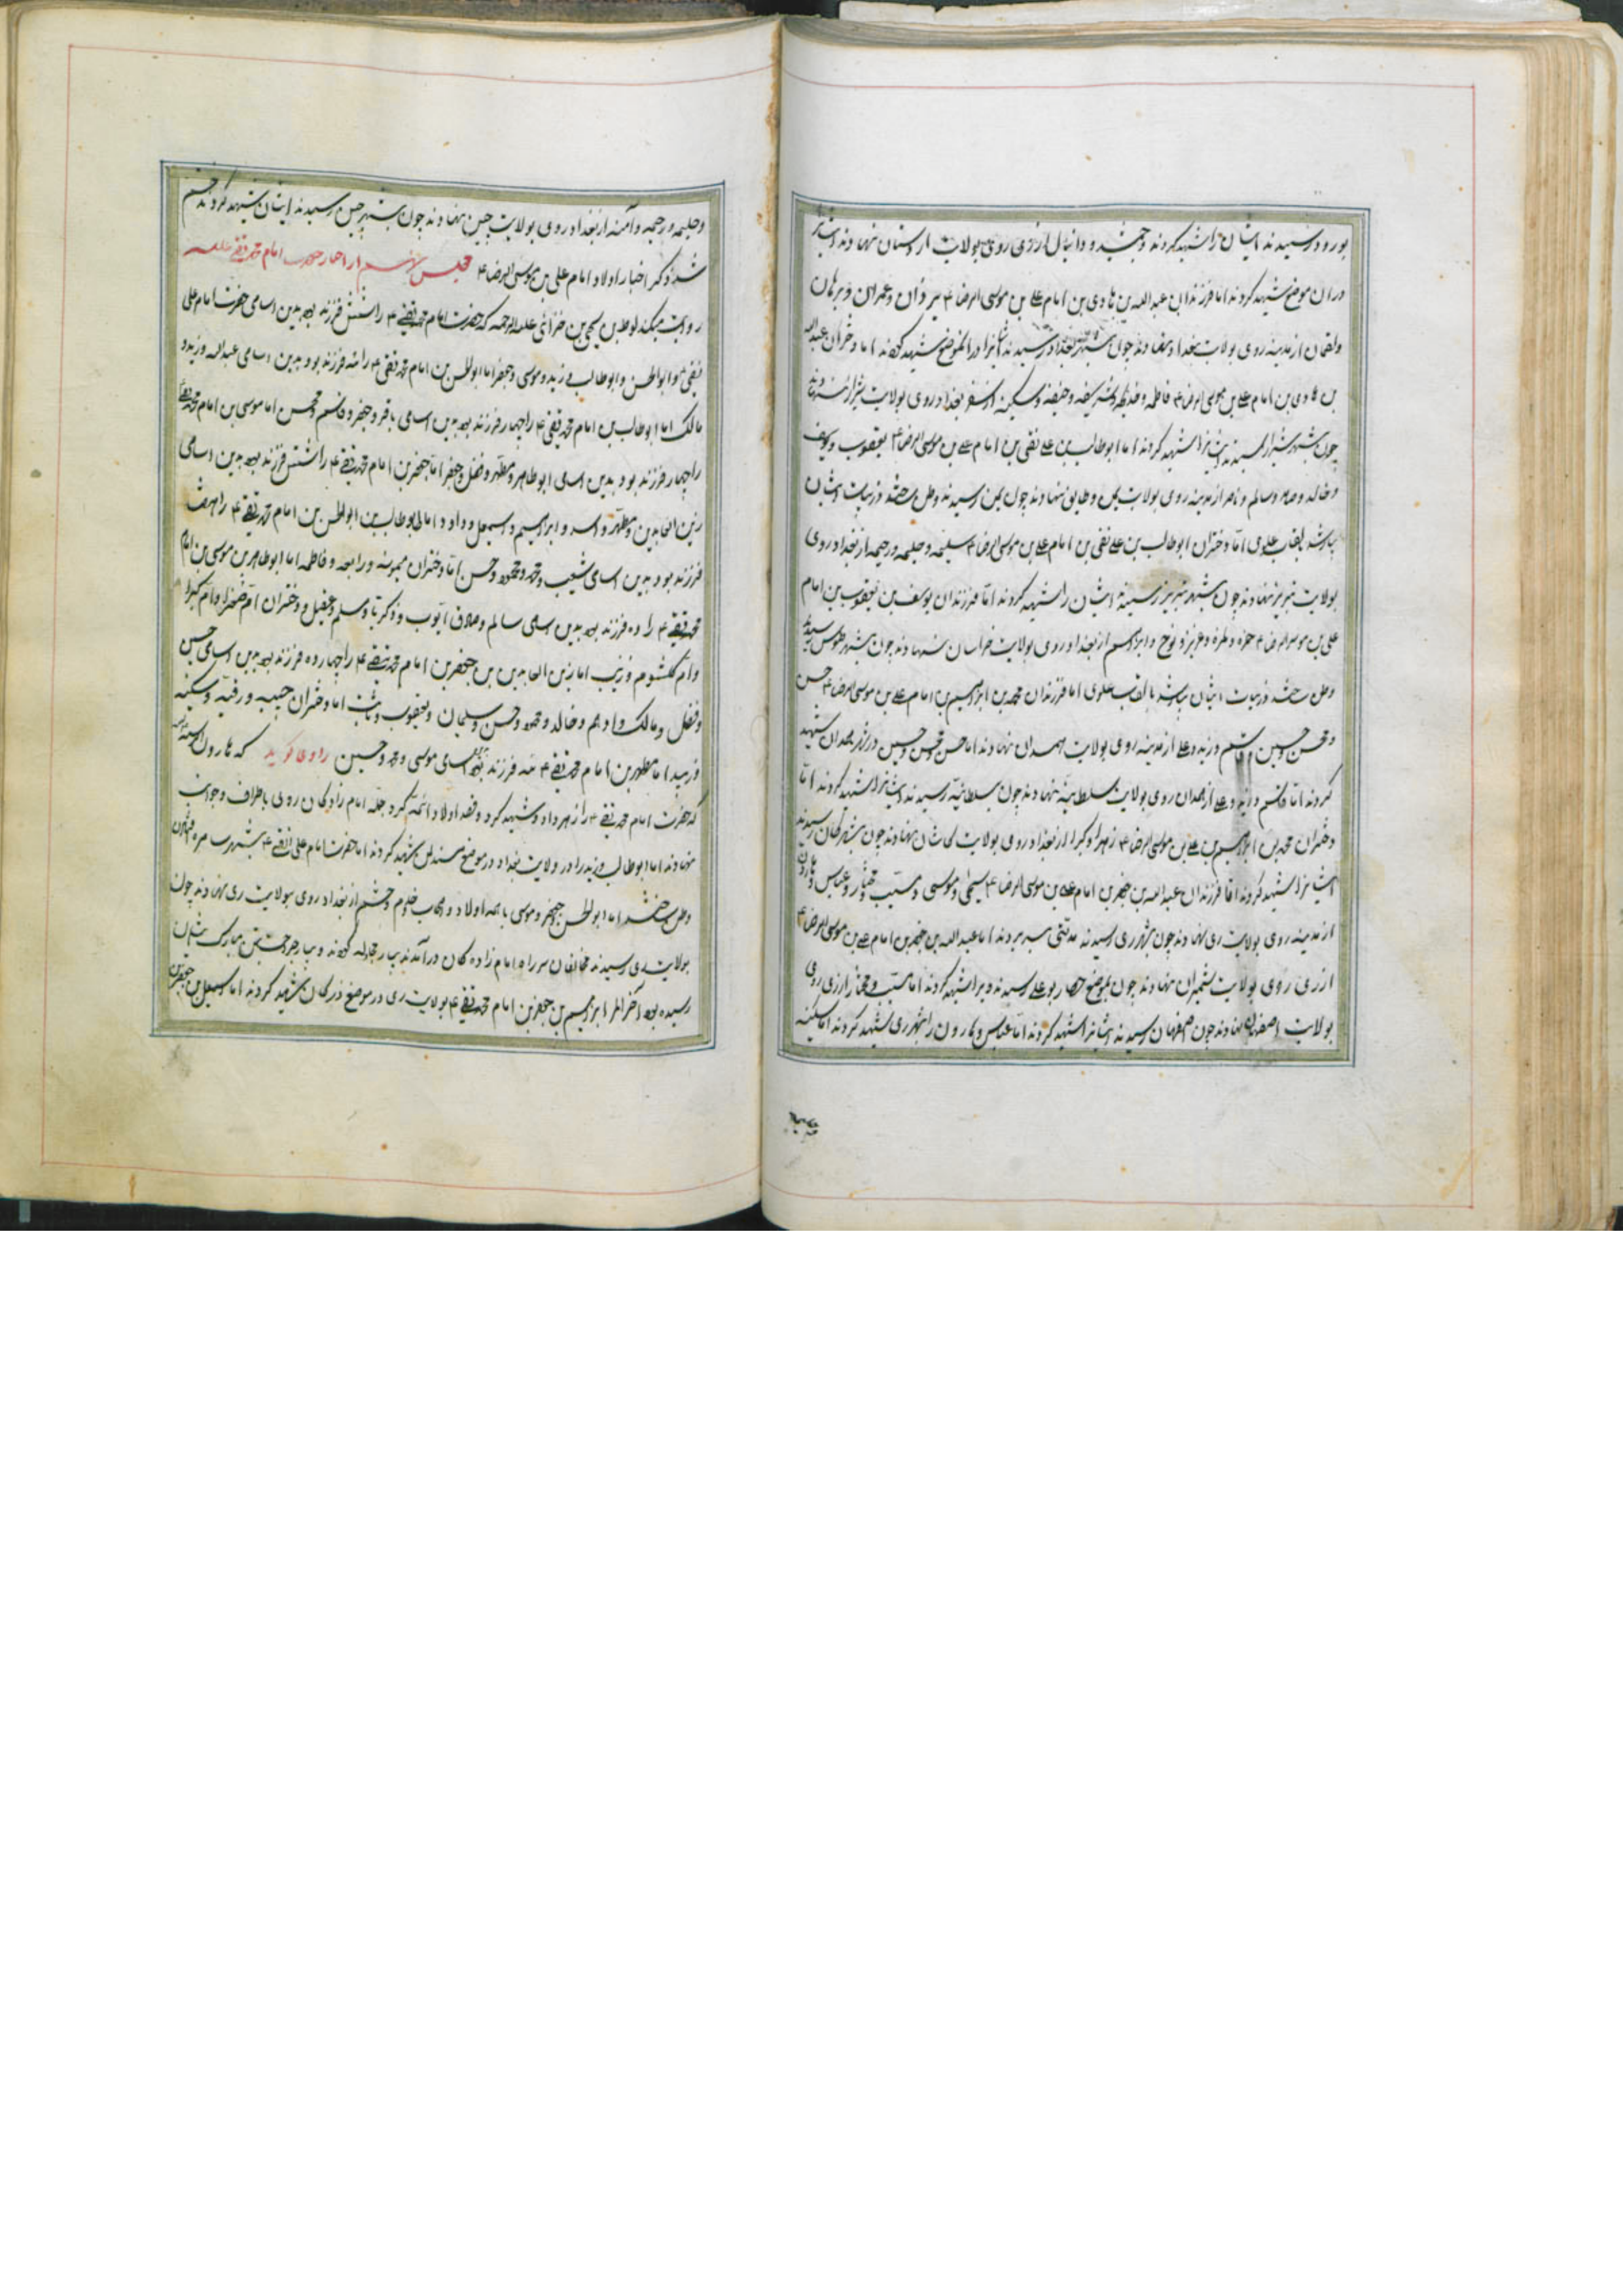 بورود رسیدند ایشان را شهید کردند و جمشید و دانیال از ری روی بولایت ارستان نهادند و ایشانرا
دران موضع شهید کردند اما فرزندان عبدالله بن هادی بن امام علی بن موسی الرضا ۴ میر وان و عمران و برهان
ولقمان از مدینه روی بولایت بغداد نهادند چون بشهر بغداد رسیدند ایشانرا در آنموضع شهید کردند اما دختران عبدالله
بن هادی بن امام علی بن موسی الرضا ۴ فاطمه و خدیجه و شریفه و حنیفه و سکینه از بغداد روی بولایت شیراز نهادند
چون بشهر شیراز رسیدند ایشانرا شهید کردند اما ابوطالب بن علی نقی بن امام علی بن موسی الرضا ۴ یعقوب و یوسف
و خالد و صابر و سالم و ناصر از مدینه روی بولایت یمن و طایف نهادند چون بیمن رسیدند وطن ساختند و ذریات ایشان
بیارشد بلقب علوی اما دختران ابوطالب بن علی نقی بن امام علی بن موسی الرضا ۴ سلیمه و حلیمه و رحیمه از بغداد روی
بولایت تبریز نهادند چون بشهر تبریز رسیدند ایشان را شهید کردند اما فرزندان یوسف بن یعقوب بن امام
علی بن موسی الرضا ۴ حمزه و طمزه و عزیز و نوح و ابراهیم از بغداد روی بولایت خراسان نهادند چون بشهر طوس رسیدند
وطن ساختند ذریات ایشان بیارشد بالقب علوی اما فرزندان محمد بن ابراهیم بن امام علی بن موسی الرضا ۴ حسن
و محسن و حسین و قاسم و زید و علی از مدینه روی بولایت همدان نهادند اما حسن و محسن و حسین در شهر همدان شهید
کردند اما قاسم و زید و علی از همدان روی بولایت سلطانیه نهادند چون بسلطانیه رسیدند ایشانرا شهید کردند اما
دختران محمد بن ابراهیم بن علی بن موسی الرضا ۴ زهرا و کبرا از بغداد روی بولایت کاشان نهادند چون بشهر کاشان رسیدند
ایشانرا شهید کردند اما فرزندان عبدالله بن جعفر بن امام علی بن موسی الرضا ۴ یحیی و موسی و مسیب و مختار و عباس و هارون
از مدینه روی بولایت ری نهادند چون بشهر ری رسیدند مدتی بسر بردند اما عبدالله بن جعفر بن امام علی بن موسی الرضا ۴
از ری روی بولایت شمیران نهادند چون بموضع حصار بوعلی رسیدند ویرا شهید کردند اما مسیب و مختار از ری روی
بولایت اصفهان نهادند چون باصفهان رسیدند ایشانرا شهید کردند اما عباس و هارون را بشهر ری شهید کردند اما سکینه
و حلیمه
و حلیمه و رحیمه و آمنه از بغداد روی بولایت چین نهادند چون بشهر چین رسیدند ایشان شهید کردند ختم
شد ذکر اخبار اولاد امام علی بن موسی الرضا ۴ مجلس نهم از اخبار حضرت امام محمد تقی علیه
روایت میکند لوط بن یحیی بن خزائی علیه الرحمه که حضرت امام محمد تقی ۴ را شش فرزند بود بدین اسامی حضرت امام علی
نقی ۴ و ابوالحسن و ابوطالب و زید و موسی و جعفر اما ابوالحسن بن امام محمد تقی ۴ را سه فرزند بود بدین اسامی عبدالله و زید و
مالک اما ابوطالب بن امام محمد تقی ۴ را چهار فرزند بود بدین اسامی باقر و جعفر و قاسم و محسن اما موسی بن امام محمد تقی
را چهار فرزند بود بدین اسامی ابوطاهر و مطهر و فضل و جعفر اما جعفر بن امام محمد تقی ۴ را شش فرزند بود بدین اسامی
زین العابدین و مطهر و اسد و ابراهیم و اسمعیل و داود اما ابوطالب بن ابوالحسن بن امام محمد تقی ۴ را هفت
فرزند بود بدین اسامی شعیب و محمد و محمود و حسن اما دختران میمونه و رابعه و فاطمه اما ابوطاهر بن موسی بن امام
محمد تقی ۴ را ده فرزند بود بدین اسامی سالم و صادق ایوب و ذکریا و مسلم و عقیل و دختران ام صغرا و ام کبرا
و ام کلثوم و زینب اما زین العابدین بن جعفر بن امام محمد تقی ۴ را چهارده فرزند بود بدین اسامی حسین
و فضل و مالک و ادهم و خالد و محمود و حسن و سلیمان و یعقوب و ثابت اما دختران حبیبه و رقیه و سکینه
و زبیده اما مطهر بن امام محمد تقی ۴ سه فرزند بود بدین اسامی موسی و محمد و حسین راوی گوید که هارون
که حضرت امام محمد تقی ۴ را زهر داد و شهید کرد و قصد اولاد ائمه کرد جمله امام زادگان روی باطراف و جوانب
نهادند اما ابوطالب و زید را در ولایت بغداد در موضع صندل شهید کردند اما حضرت امام علی النقی ۴ بشهر سامره
وطن ساختند اما ابوالحسن و جعفر و موسی با همه اولاد و اصحاب و خدم و حشم از بغداد روی بولایت ری نهادند چون
بولایت ری رسیدند مخالفان سر راه امام زاده گان در آمدند بسیار مجادله کردند و بسیار جراحت بتن مبارک ایشان
رسیده بود آخر الامر ابراهیم بن جعفر بن امام محمد تقی ۴ بولایت ری در موضع زرکان شهید کردند اما اسمعیل بن جعفر بن